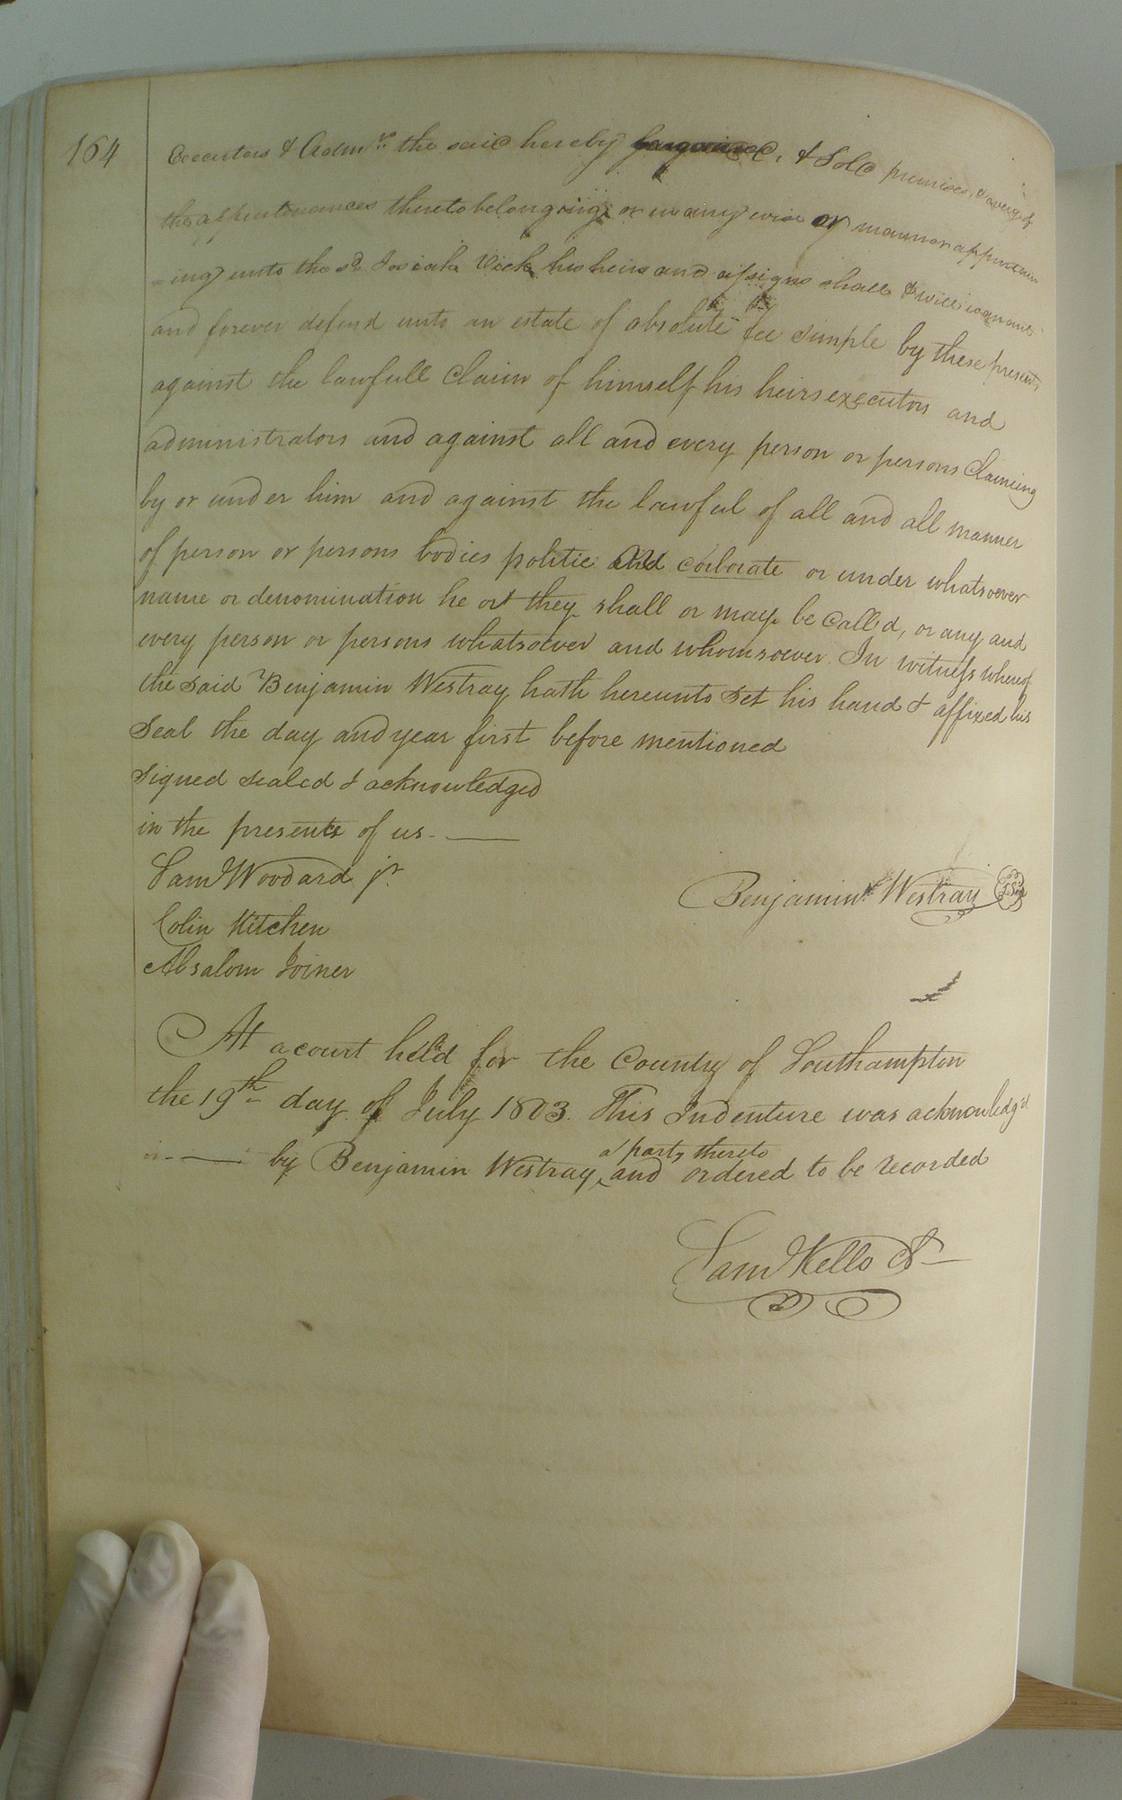 164
Executors & Adm.rs the said hereby bargained, & Sold premises, & every of
the appurtenances thereto belonging or in any wise or manner appertain
-ing unto the sd. Josiah Vick his heirs and assigns shall & will warrant
and forever defend unto an estate of absolute fee simple by these presents
against the lawfull Claim of himself his heirs executors and
administrators and against all and every person or persons Claiming
by or under him and against the lawful of all and all manner
of person or persons bodies politic and corborate or under whatsoever
name or denomination he or they shall or may be Called, or any and
every person or persons whatsoever and whomsoever. In witness whereof
the said Benjamin Westray hath hereunto set his hand & affixed his
Seal the day and year first before mentioned
Signed sealed & acknowledged
in the presents of us.
Sam Woodard jr.
Benjamin Westray
Colin Kitchen
Absalom Joiner
At a court held for the Country of Southampton
the 19th day of July 1803. This Indenture was acknowledg'd
by Benjamin Westray a party thereto and ordered to be recorded
Sam Kello Ck